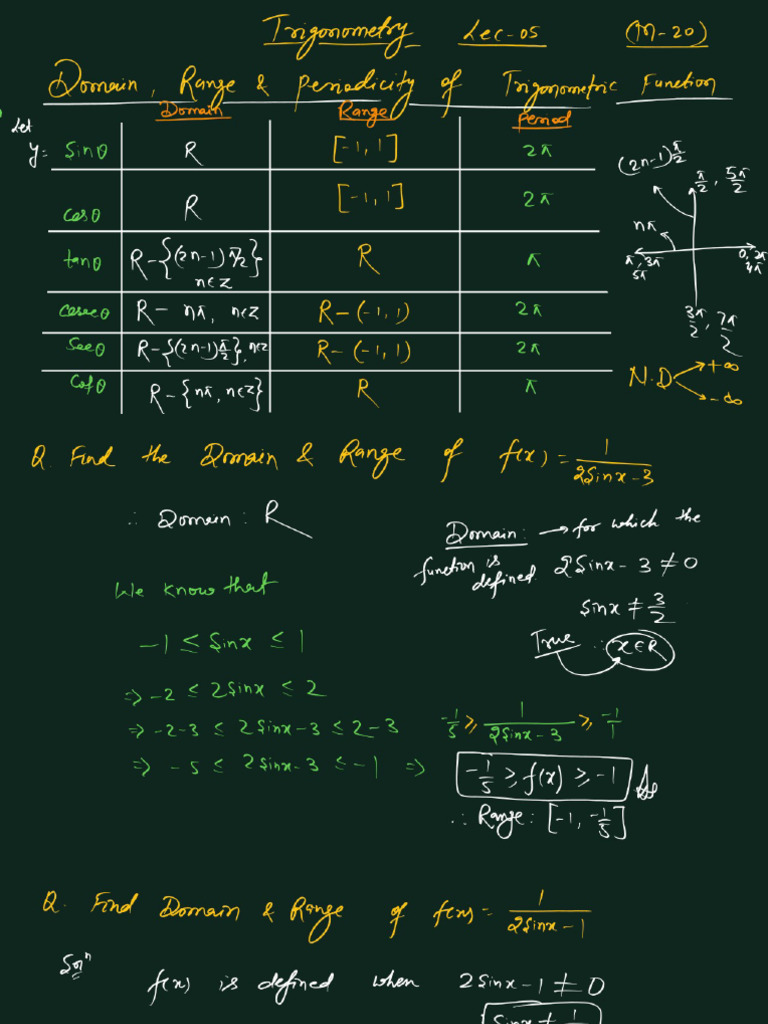 Trigonometry Lec-05 (M-20)
Domain, Range & Periodicity of Trigonometric Function
Domain Range Period
Let
y= Sinθ R [-1,1] 2π
cosθ R [-1,1] 2π
tanθ R-{(2n-1)π/2} n∈Z R π
cosecθ R- nπ, n∈Z R-(-1,1) 2π
Secθ R-{(2n-1)π/2}, n∈Z R-(-1,1) 2π
Cotθ R-{nπ, n∈Z} R π
(2n-1)π/2
π/2, 5π/2
nπ
π, 3π
5π
0, 2π
4π
3π/2, 7π/2
N.D +∞
-∞
Q. Find the Domain & Range of f(x) = 1/(2Sinx-3)
∴ Domain: R
Domain: → for which the
function is defined. 2Sinx-3≠0
Sinx ≠ 3/2
True ∴ x∈R
We know that
-1 ≤ Sinx ≤ 1
⇒ -2 ≤ 2Sinx ≤ 2
⇒ -2-3 ≤ 2Sinx-3 ≤ 2-3
⇒ -5 ≤ 2Sinx-3 ≤ -1 ⇒
-1/5 ≥ 1/(2Sinx-3) ≥ -1/1
-1/5 ≥ f(x) ≥ -1
∴ Range: [-1, -1/5]
Q. Find Domain & Range of f(x) = 1/(2Sinx-1)
Solⁿ
f(x) is defined when 2Sinx-1≠0
Sinx ≠ 1